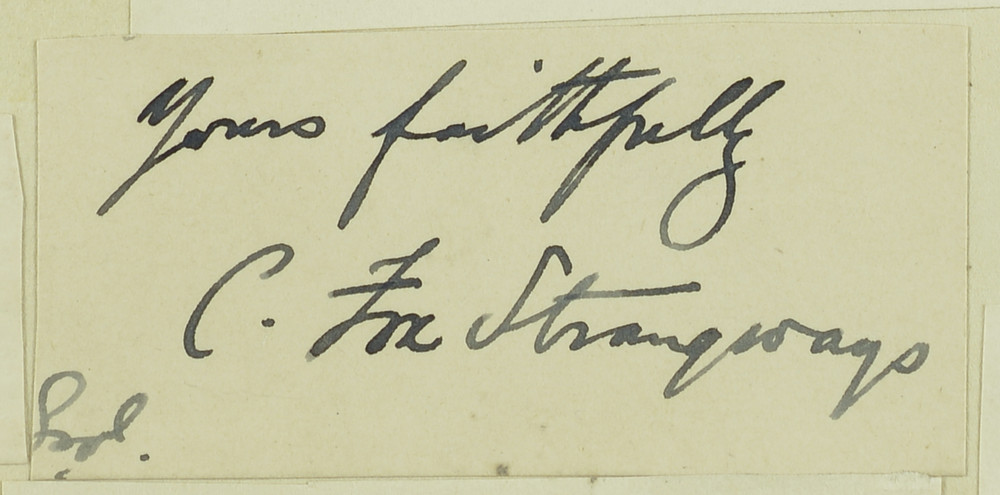 Yours faithfully
C. Fox Strangways